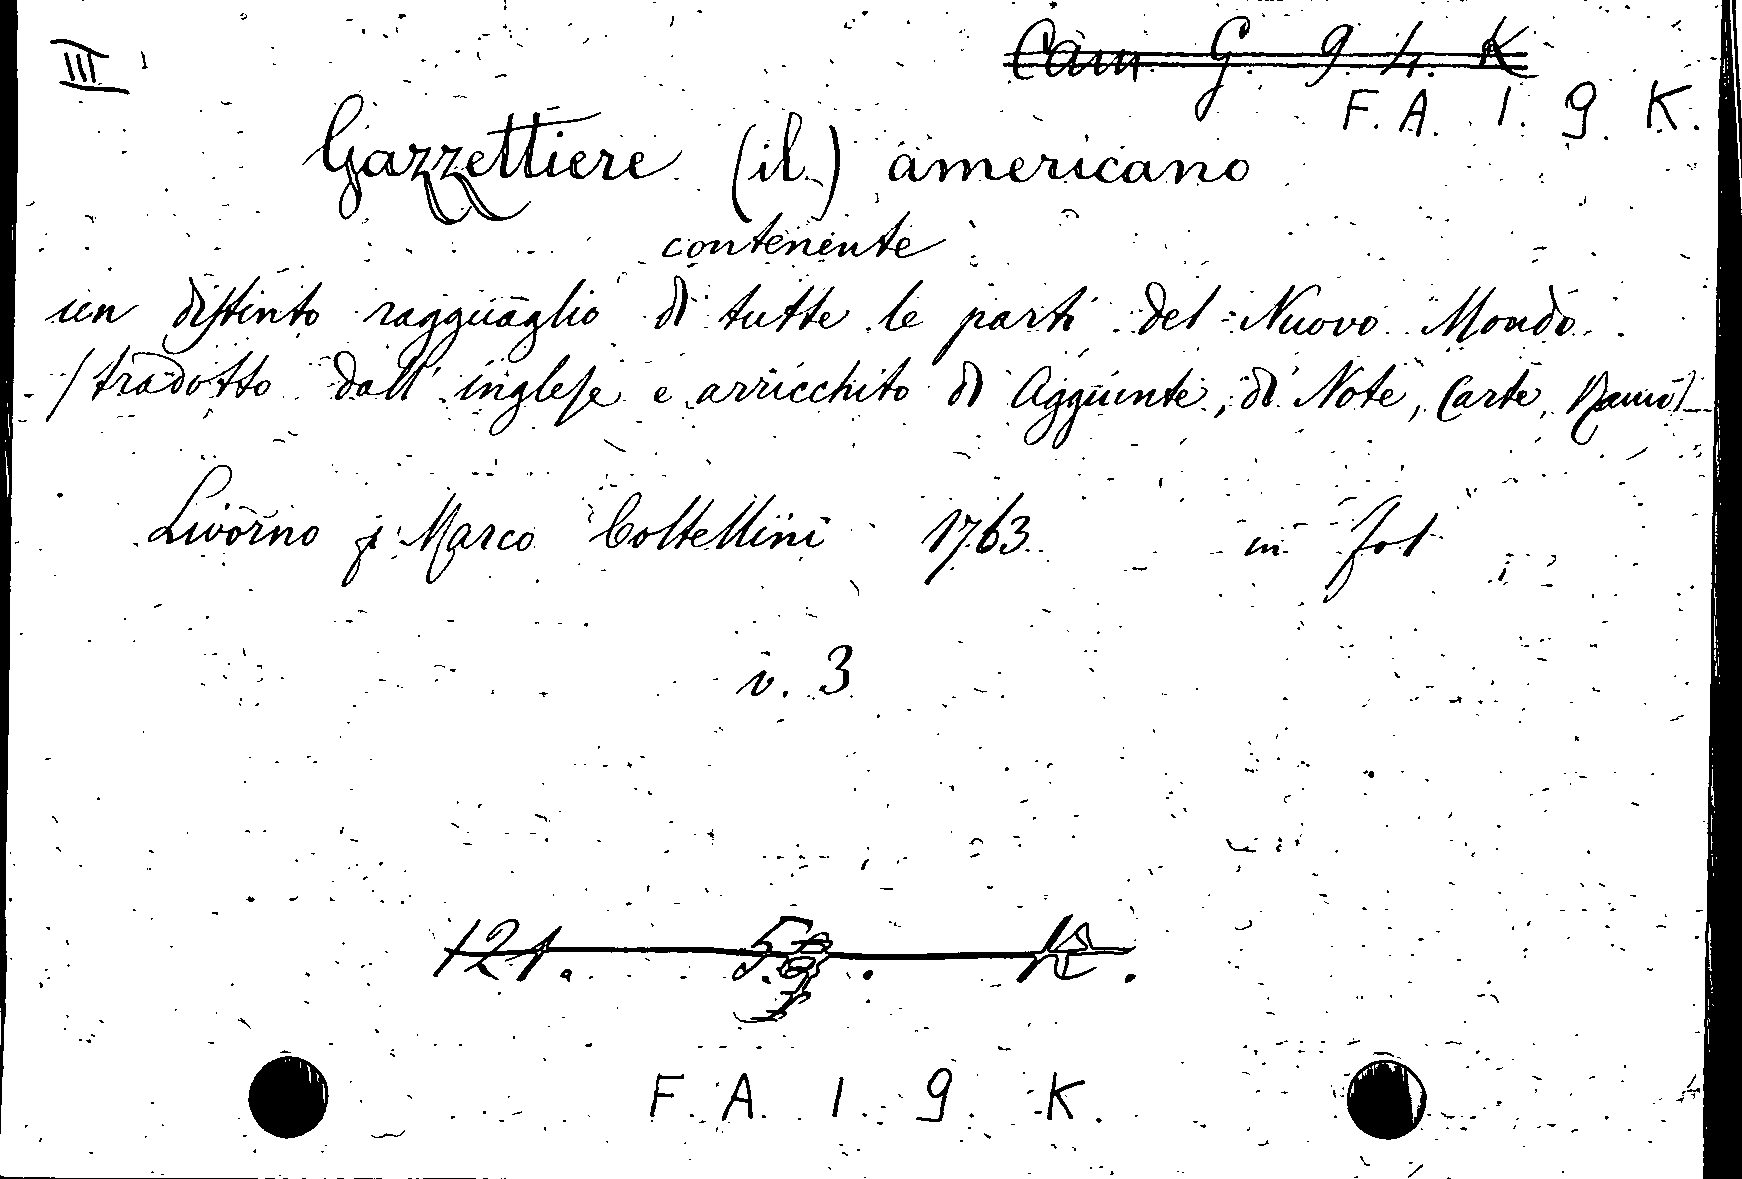 III
Cam G. 9. 4. K
F. A. 1. 9. K.
Gazzettiere (il) americano
contenente
un distinto ragguaglio di tutte le parti del Nuovo Mondo
(tradotto dall' inglese e arricchito di Aggiunte, di Note, Carte, Rami)
Livorno p Marco Coltellini 1763 in fol
v. 3
121. 5. K.
F. A. 1. 9. K.